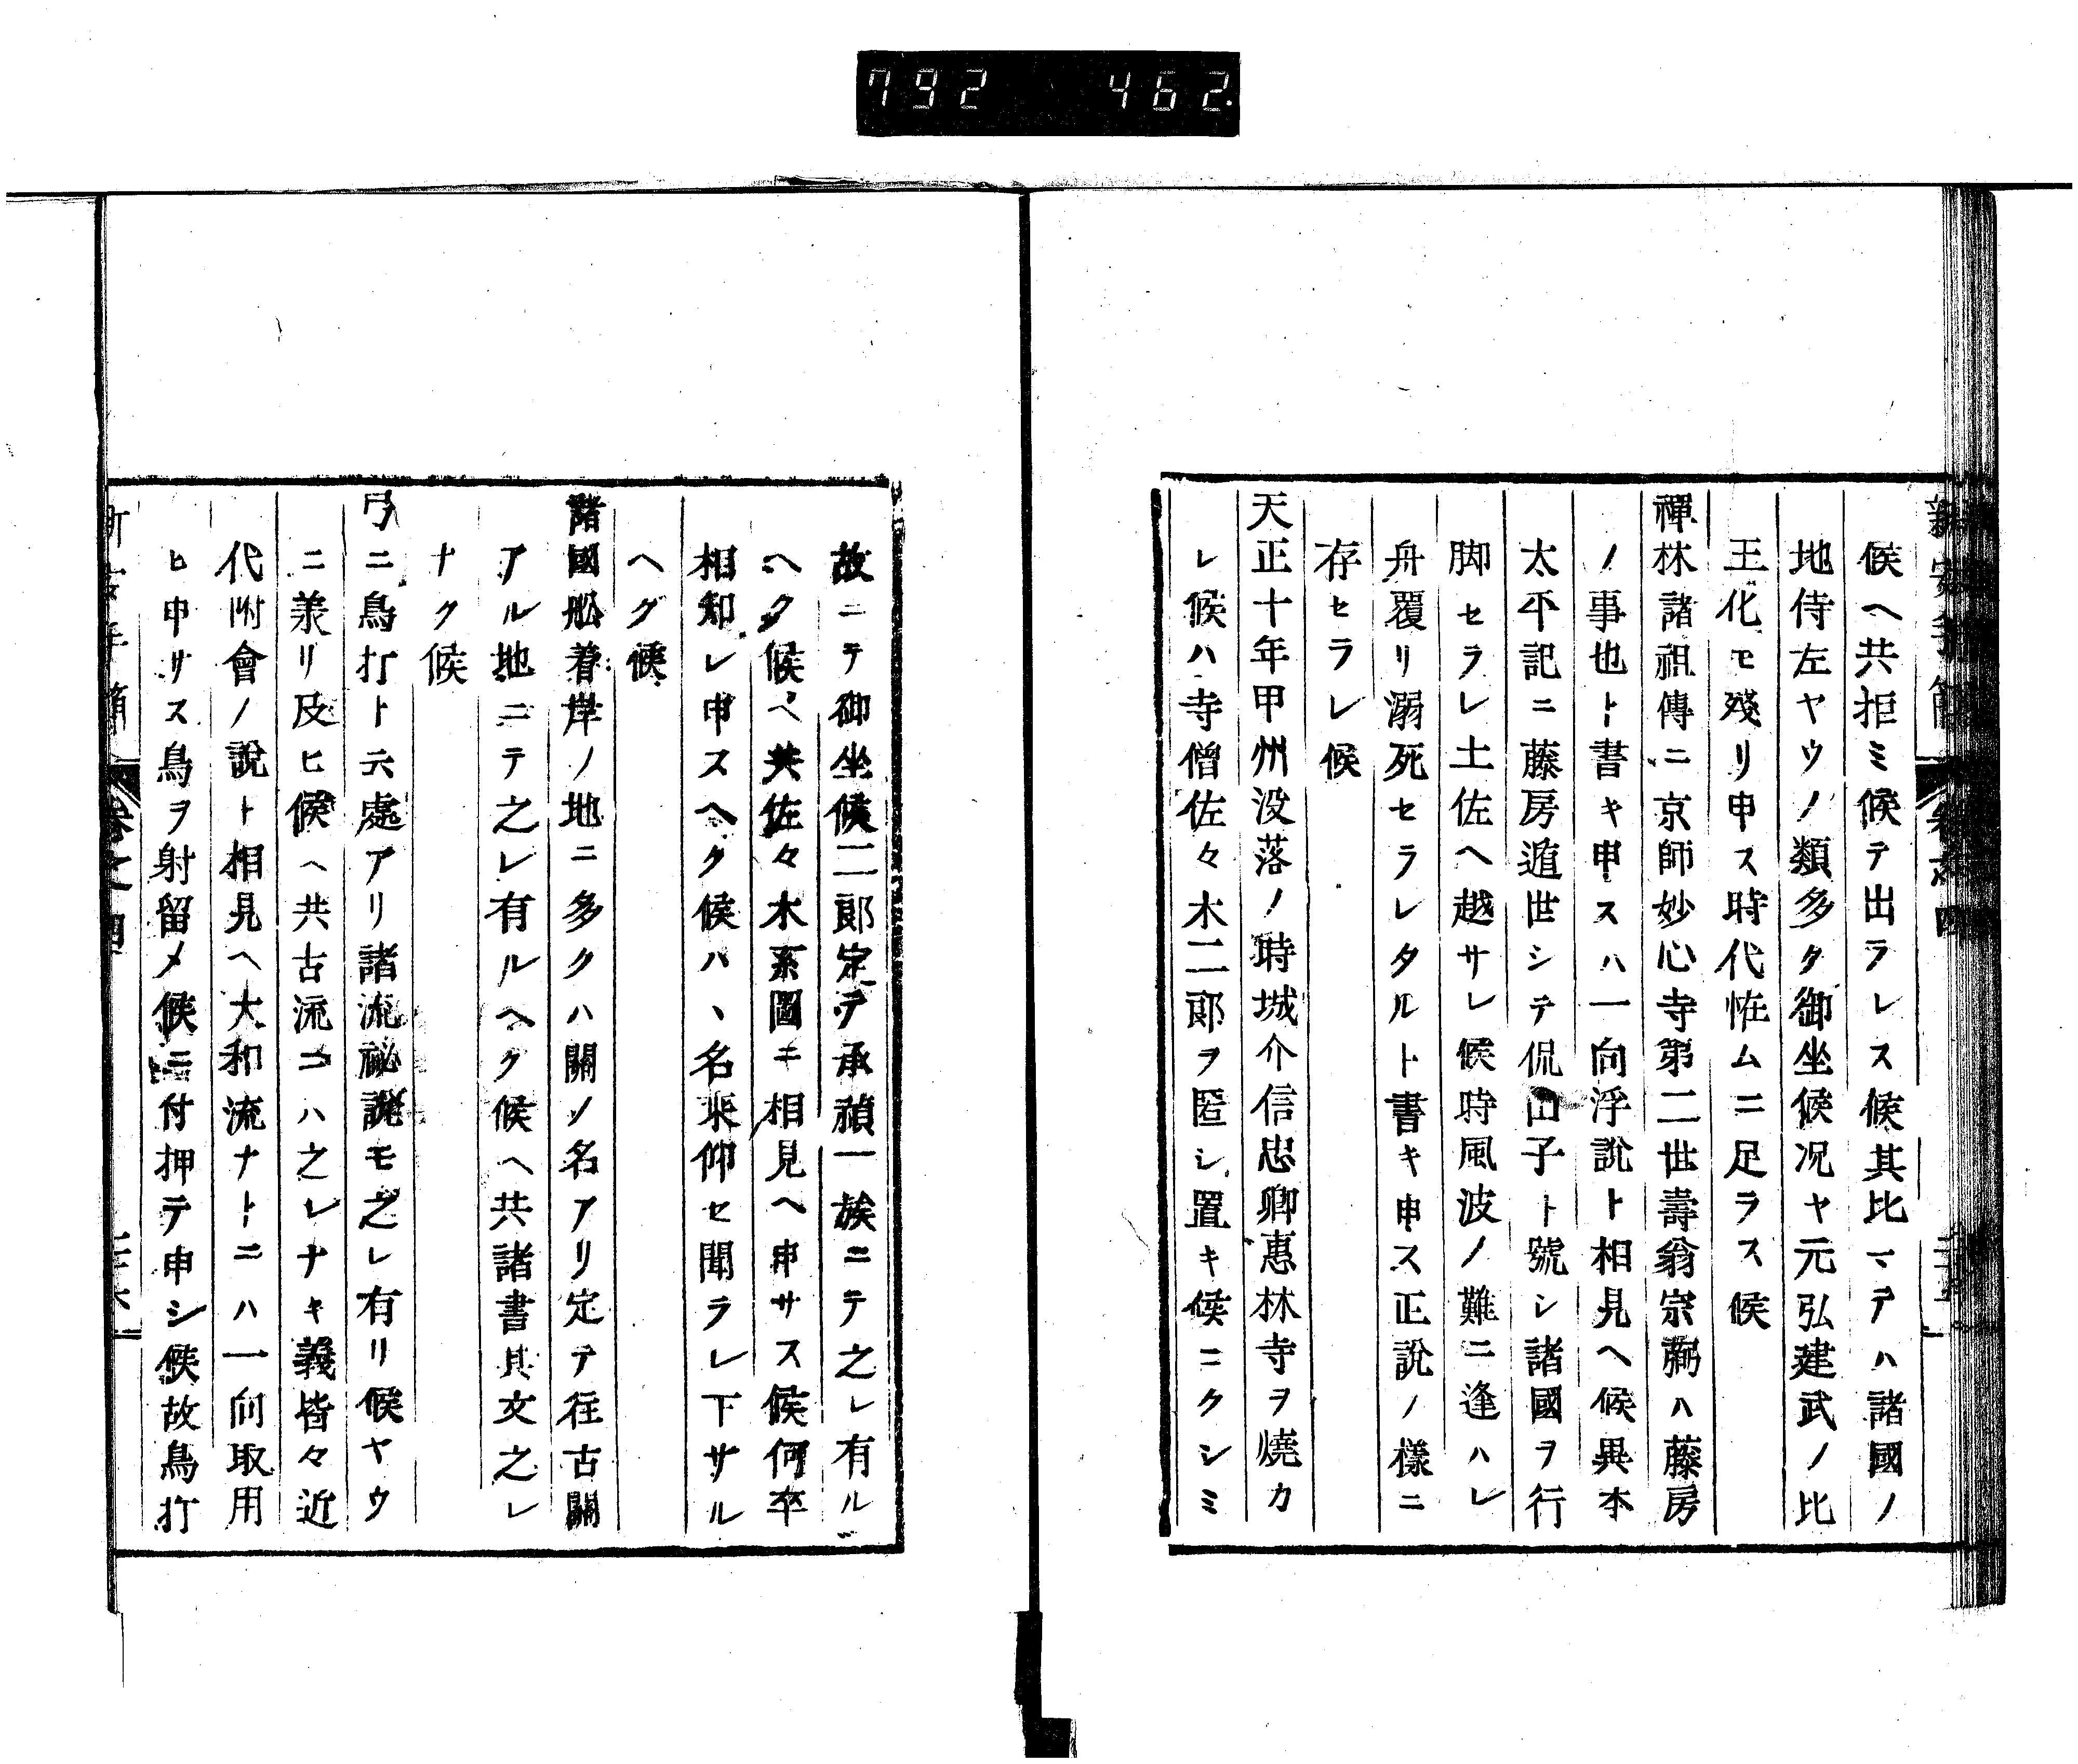 792 462
候ヘ共拒ミ候テ出ラレス候其比マテハ諸國ノ
地侍左ヤウノ類多ク御坐候况ヤ元弘建武ノ比
王化モ殘リ申ス時代恠ムニ足ラス候
禪林諸祖傳ニ京師妙心寺第二世壽翁宗弼ハ藤房
ノ事也ト書キ申スハ一向浮說ト相見ヘ候異本
太平記ニ藤房遁世シテ侃山子ト號シ諸國ヲ行
脚セラレ土佐ヘ越サレ候時風波ノ難ニ逢ハレ
舟覆リ溺死セラレタルト書キ申ス正說ノ樣ニ
存セラレ候
天正十年甲州没落ノ時城介信忠卿惠林寺ヲ燒カ
レ候ハ寺僧佐々木二郎ヲ匿シ置キ候ニクシミ
故ニテ御坐候二郎定テ承禎一族ニテ之レ有ル
ヘク候ヘ共佐々木系圖ニ相見ヘ申サス候何卒
相知レ申スヘク候ハヽ名乘仰セ聞ラレ下サル
ヘク候
諸國舩着岸ノ地ニ多クハ關ノ名アリ定テ往古關
アル地ニテ之レ有ルヘク候ヘ共諸書其文之レ
ナク候
弓ニ鳥打ト云處アリ諸流祕說モ之レ有リ候ヤウ
ニ羕リ及ヒ候ヘ共古流ニハ之レナキ義皆々近
代附會ノ說ト相見ヘ大和流ナトニハ一向取用
ヒ申サス鳥ヲ射留メ候ニ付押テ申シ候故鳥打
卷之四